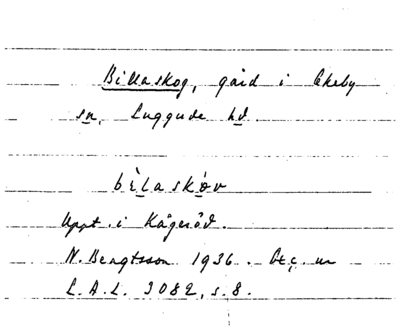 Billaskog, gård i Ekeby
sn, Luggude hd.
bìlaskòv
Uppt. i Kågeröd.
N. Bengtsson 1936. Exc. ur
L.A.L. 3082, s. 8.